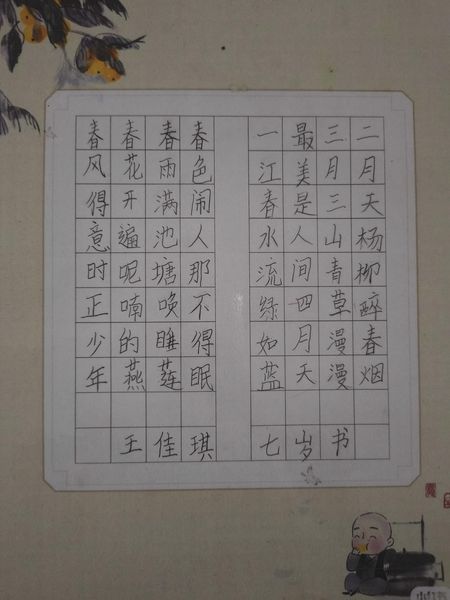 二月天杨柳醉春烟
三月三山青草漫漫
最美是人间四月天
一江春水流绿如蓝
春色闹人那不得眠
春雨满池塘唤睡莲
春花开遍呢喃的燕
春风得意时正少年
王佳琪
七岁书
小红书